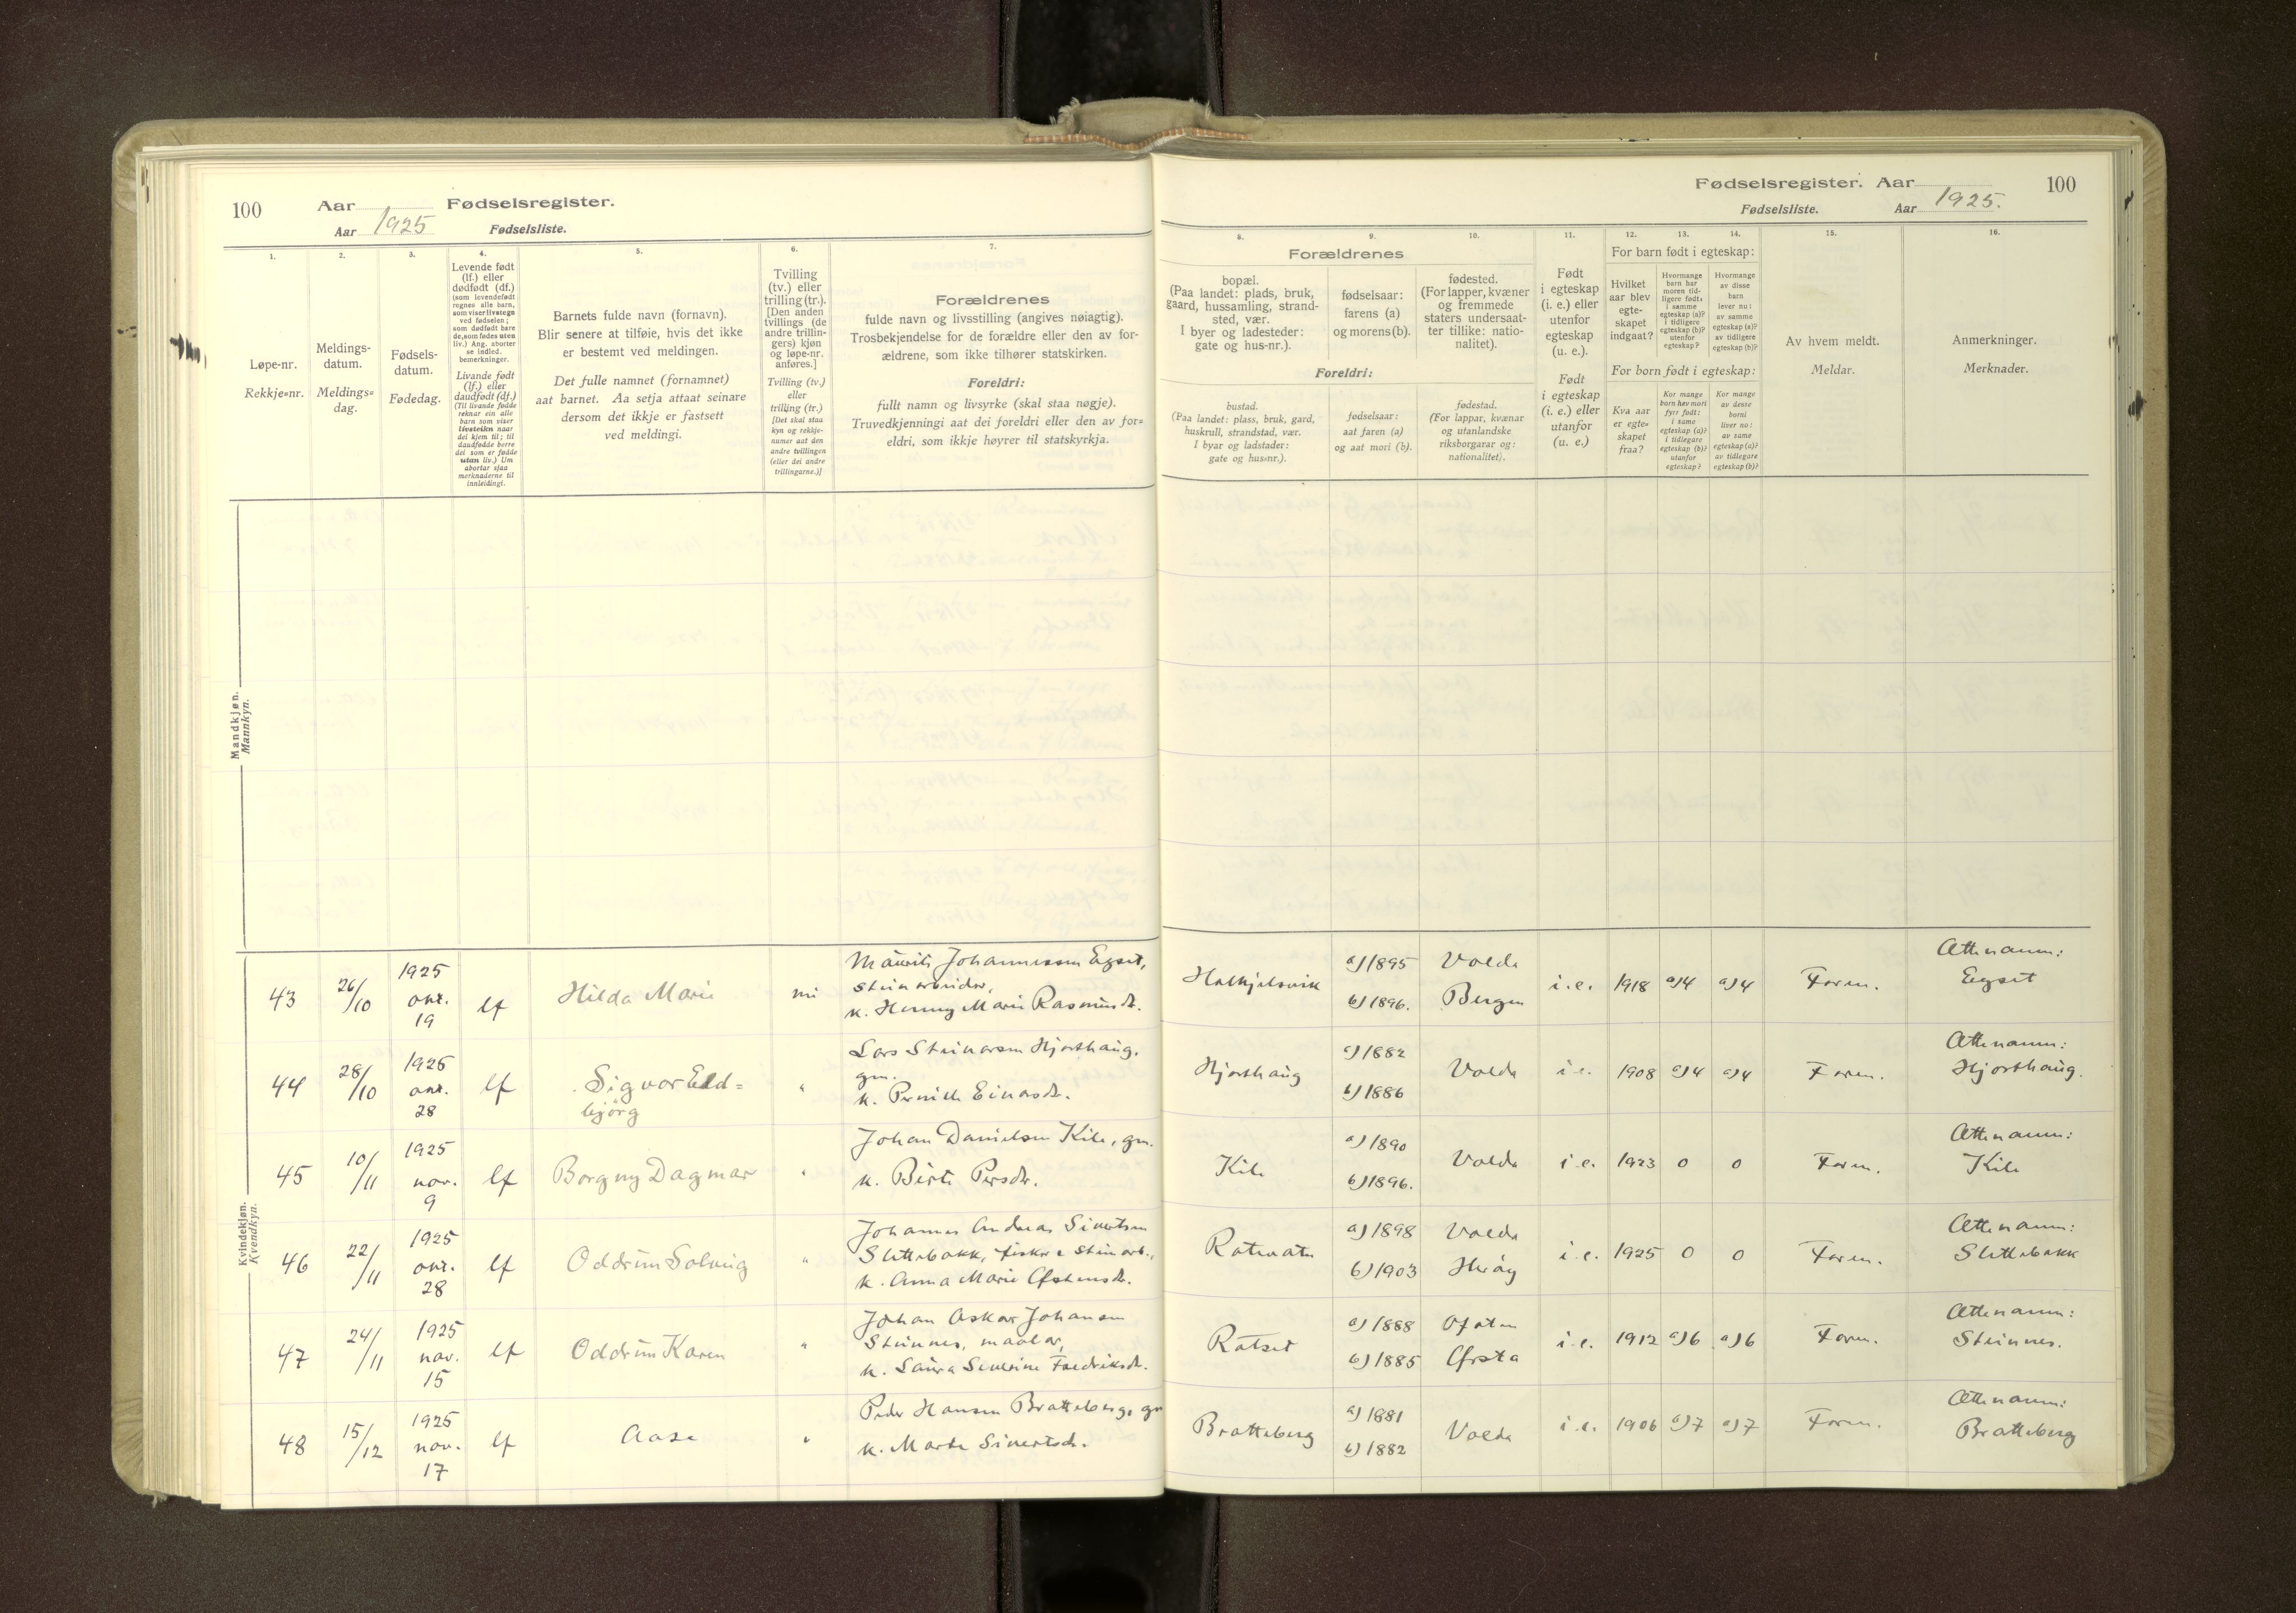 100 Aar 1925 Fødselsregister.
Aar Fødselsliste.
1.
Løpe-nr.
Rekkje=nr.
2.
Meldings-
datum.
Meldings=
dag.
3.
Fødsels-
datum.
Fødedag.
4.
Levende født
(lf.) eller
dødfødt (df.)
(som levendefødt
regnes alle barn,
som viser livstegn
ved fødselen;
som dødfødt bare
de, som fødes uten
liv.) Ang. aborter
se indled.
bemerkninger.
Livande født
(lf.) eller
daudfødt (df.)
(Til livande fødde
reknar ein alle
barn som viser
livsteikn naar
dei kjem til; til
daudfødde berre
dei som er fødde
utan liv.) Um
abortar sjaa
merknaderne til
innleidingi.
5.
Barnets fulde navn (fornavn).
Blir senere at tilføie, hvis det ikke
er bestemt ved meldingen.
Det fulle namnet (fornamnet)
aat barnet. Aa setja attaat seinare
dersom det ikkje er fastsett
ved meldingi.
6.
Tvilling
(tv.) eller
trilling (tr.).
[Den anden
tvillings (de
andre trillin-
gers) kjøn
og løpe-nr.
anføres.]
Tvilling (tv.)
eller
trilling (tr.)
[Det skal staa
kyn og rekkje-
numer aat den
andre tvillingen
(eller dei andre
trillingarne.)]
7.
Forældrenes
fulde navn og livsstilling (angives nøiagtig).
Trosbekjendelse for de forældre eller den av for-
ældrene, som ikke tilhører statskirken.
Foreldri:
fullt namn og livsyrke (skal staa nøgje).
Truvedkjenningi aat dei foreldri eller den av for=
eldri, som ikkje høyrer til statskyrkja.
Fødselsregister. Aar 1925. 100
Fødselsliste. Aar
Forældrenes
8.
bopæl.
(Paa landet: plads, bruk,
gaard, hussamling, strand-
sted, vær.
I byer og ladesteder:
gate og hus-nr.).
9.
fødselsaar:
farens (a)
og morens (b).
10.
fødested.
(For lapper, kvæner
og fremmede
staters undersaat-
ter tillike: natio-
nalitet).
Foreldri:
bustad.
(Paa landet: plass, bruk, gard,
huskrull, strandstad, vær.
I byar og ladstader:
gate og hus=nr.).
fødselsaar:
aat faren (a)
og aat mori (b).
fødestad.
(For lappar, kvænar
og utanlandske
riksborgarar og:
nationalitet).
11.
Født
i egteskap
(i. e.) eller
utenfor
egteskap
(u. e.).
Født
i egteskap
(i. e.) eller
utanfor
(u. e.)
12. 13. 14.
For barn født i egteskap:
Hvilket
aar blev
egte-
skapet
indgaat?
Hvormange
barn har
moren tid-
ligere født:
i samme
egteskap (a)?
i tidligere
egteskap (b)?
utenfor
egteskap?
Hvormange
av disse
barn
lever nu:
av samme
egteskap (a)?
av tidligere
egteskap (b)?
For born født i egteskap:
Kva aar
er egte=
skapet
fraa?
Kor mange
born hev mori
fyrr født:
i same
egteskap (a)?
i tidlegare
egteskap (b)?
utanfor
egteskap?
Kor mange
av desse
borni
liver no:
av same
egteskap (a)?
av tidlegare
egteskap (b)?
15.
Av hvem meldt.
Meldar.
16.
Anmerkninger.
Merknader.
Mandkjøn.
Mannkyn.
Kvindekjøn.
Kvendkyn.
43 26/10 1925 okt. 19 lf Hilda Marie nei
Maurits Johannessen Egset,
steinarbeider,
k. Henny Marie Rasmusdr.
Halkjelsvik a) 1895 b) 1896. Volda Bergen i. e. 1918 a) 4 a) 4 Faren. Ættenamn: Egset
44 28/10 1925 okt. 28 lf Sigvor Eld=
björg "
Lars Steinarsen Hjorthaug,
gm.
k. Pernille Einarsdr.
Hjorthaug a) 1882 b) 1886 Volda i. e. 1908 a) 4 a) 4 Faren. Ættenamn: Hjorthaug.
45 10/11 1925 nov. 9 lf Borgny Dagmar "
Johan Danielsen Kile, gm.
k. Birte Persdr.
Kile a) 1890 b) 1896. Volda i. e. 1923 0 0 Faren. Ættenamn: Kile
46 22/11 1925 okt. 28 lf Oddrun Solveig "
Johannes Andreas Sivertsen
Slettebakk, fisker e steinarb.,
k. Anna Marie Ofstensdr.
Rotevatn a) 1898 b) 1903 Volda Herøy i. e. 1925 0 0 Faren. Ættenamn: Slettebakk
47 24/11 1925 nov. 15 lf Oddrun Karen "
Johan Askar Johansen
Steinnes, maalar,
k. Laura Severine Fredriksdr.
Rotset a) 1888 b) 1885 Ørsta i. e. 1912 a) 6 a) 6 Faren. Ættenamn: Steinnes.
48 15/12 1925 nov. 17 lf Aase "
Peder Hansen Bratteberg, gm
k. Marte Sivertsdr.
Bratteberg a) 1881 b) 1882 Volda i. e. 1906 a) 7 a) 7 Faren. Ættenamn: Bratteberg